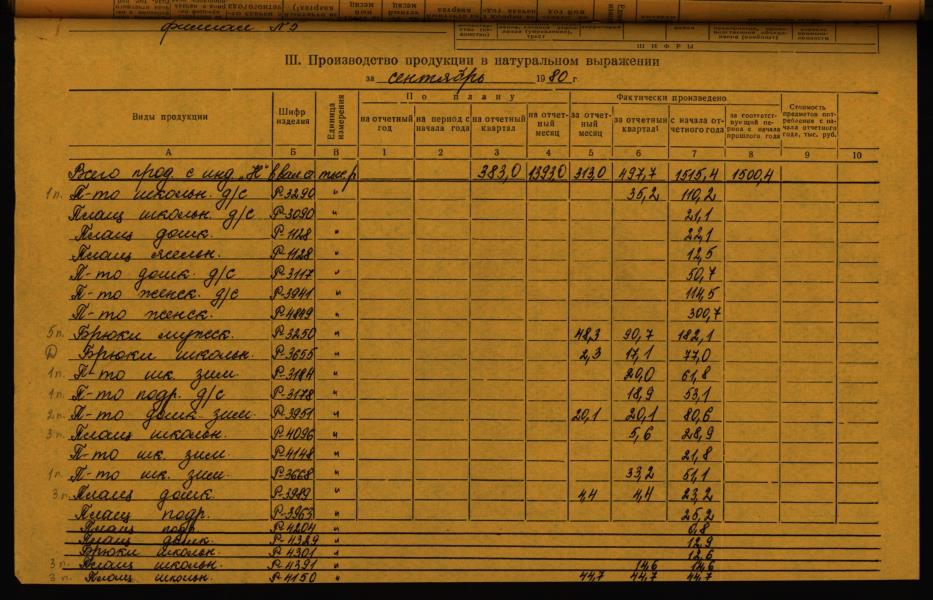 филиал №5
ШИФРЫ
III. Производство продукции в натуральном выражении
за сентябрь 1980 г.
Виды продукции | Шифр изделия | Единица измерения | По плану | Фактически произведено | Стоимость предметов потребления с начала отчетного года, тыс. руб.
на отчетный год | на период с начала года | на отчетный квартал | на отчетный месяц | за отчетный месяц | за отчетный квартал | с начала отчетного года | за соответствующий период с начала прошлого года
А Б В 1 2 3 4 5 6 7 8 9 10
Всего прод. с инд. „Н" в вал. а тыс. р 383,0 1393,0 313,0 497,7 1515,4 1500,4
1 п. П-то школьн. д/с Р-3290 " 35,2 110,2
Плащ школьн. д/с Р-3090 " 21,1
Плащ дошк. Р-1128 " 22,1
Плащ ясельн. Р-1128 " 12,5
П-то дошк. д/с Р-3117 " 50,7
П-то женск. д/с Р-3941 " 114,5
П-то женск. Р-4849 " 300,7
5 п. Брюки мужск. Р-3250 " 48,3 90,7 182,1
Брюки школьн. Р-3655 " 2,3 17,1 77,0
1 п. П-то шк. зим. Р-3184 " 20,0 61,8
1 п. П-то подр. д/с Р-3178 " 18,9 53,1
2 п. П-то дошк. зим. Р-3951 " 20,1 20,1 80,6
3 п. Плащ школьн. Р-4096 " 5,6 28,9
П-то шк. зим. Р-4148 " 21,8
1 п. П-то шк. зим. Р-3668 " 33,2 51,1
3 п. Плащ дошк. Р-3989 " 4,4 4,4 23,2
Плащ подр. Р-3963 " 25,2
Плащ подр. Р-4204 " 0,8
Плащ дошк. Р-4329 " 12,9
Брюки школьн. Р-4301 " 12,6
3 п. Плащ школьн. Р-4391 " 14,6 14,6
3 п. Плащ школьн. Р-4150 " 44,7 44,7 44,7